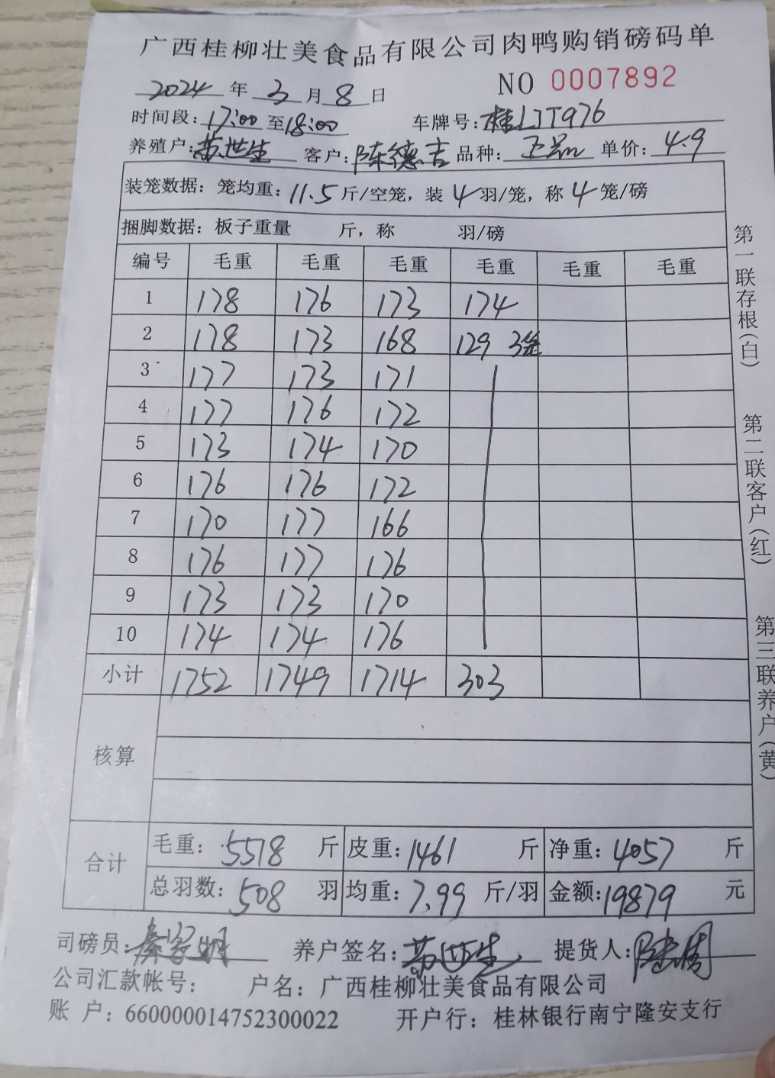 广西桂柳壮美食品有限公司肉鸭购销磅码单
2024 年 3 月 8 日 NO 0007892
时间段: 17:00 至 18:00 车牌号: 桂LJT976
养殖户: 苏世生 客户: 陈德吉 品种: 正品 单价: 4.9
装笼数据: 笼均重: 11.5 斤/空笼, 装 4 羽/笼, 称 4 笼/磅
捆脚数据: 板子重量 斤, 称 羽/磅
编号 毛重 毛重 毛重 毛重 毛重 毛重
1 178 176 173 174
2 178 173 168 129 3笼
3 177 173 171
4 177 176 172
5 173 174 170
6 176 176 172
7 170 177 166
8 176 177 176
9 173 173 170
10 174 174 176
小计 1752 1749 1714 303
核算
合计 毛重: 5518 斤 皮重: 1461 斤 净重: 4057 斤
总羽数: 508 羽 均重: 7.99 斤/羽 金额: 19879 元
司磅员: 养户签名: 苏世生 提货人:
公司汇款帐号: 户名: 广西桂柳壮美食品有限公司
账 户: 660000014752300022 开户行: 桂林银行南宁隆安支行
第一联存根(白)
第二联客户(红)
第三联养户(黄)